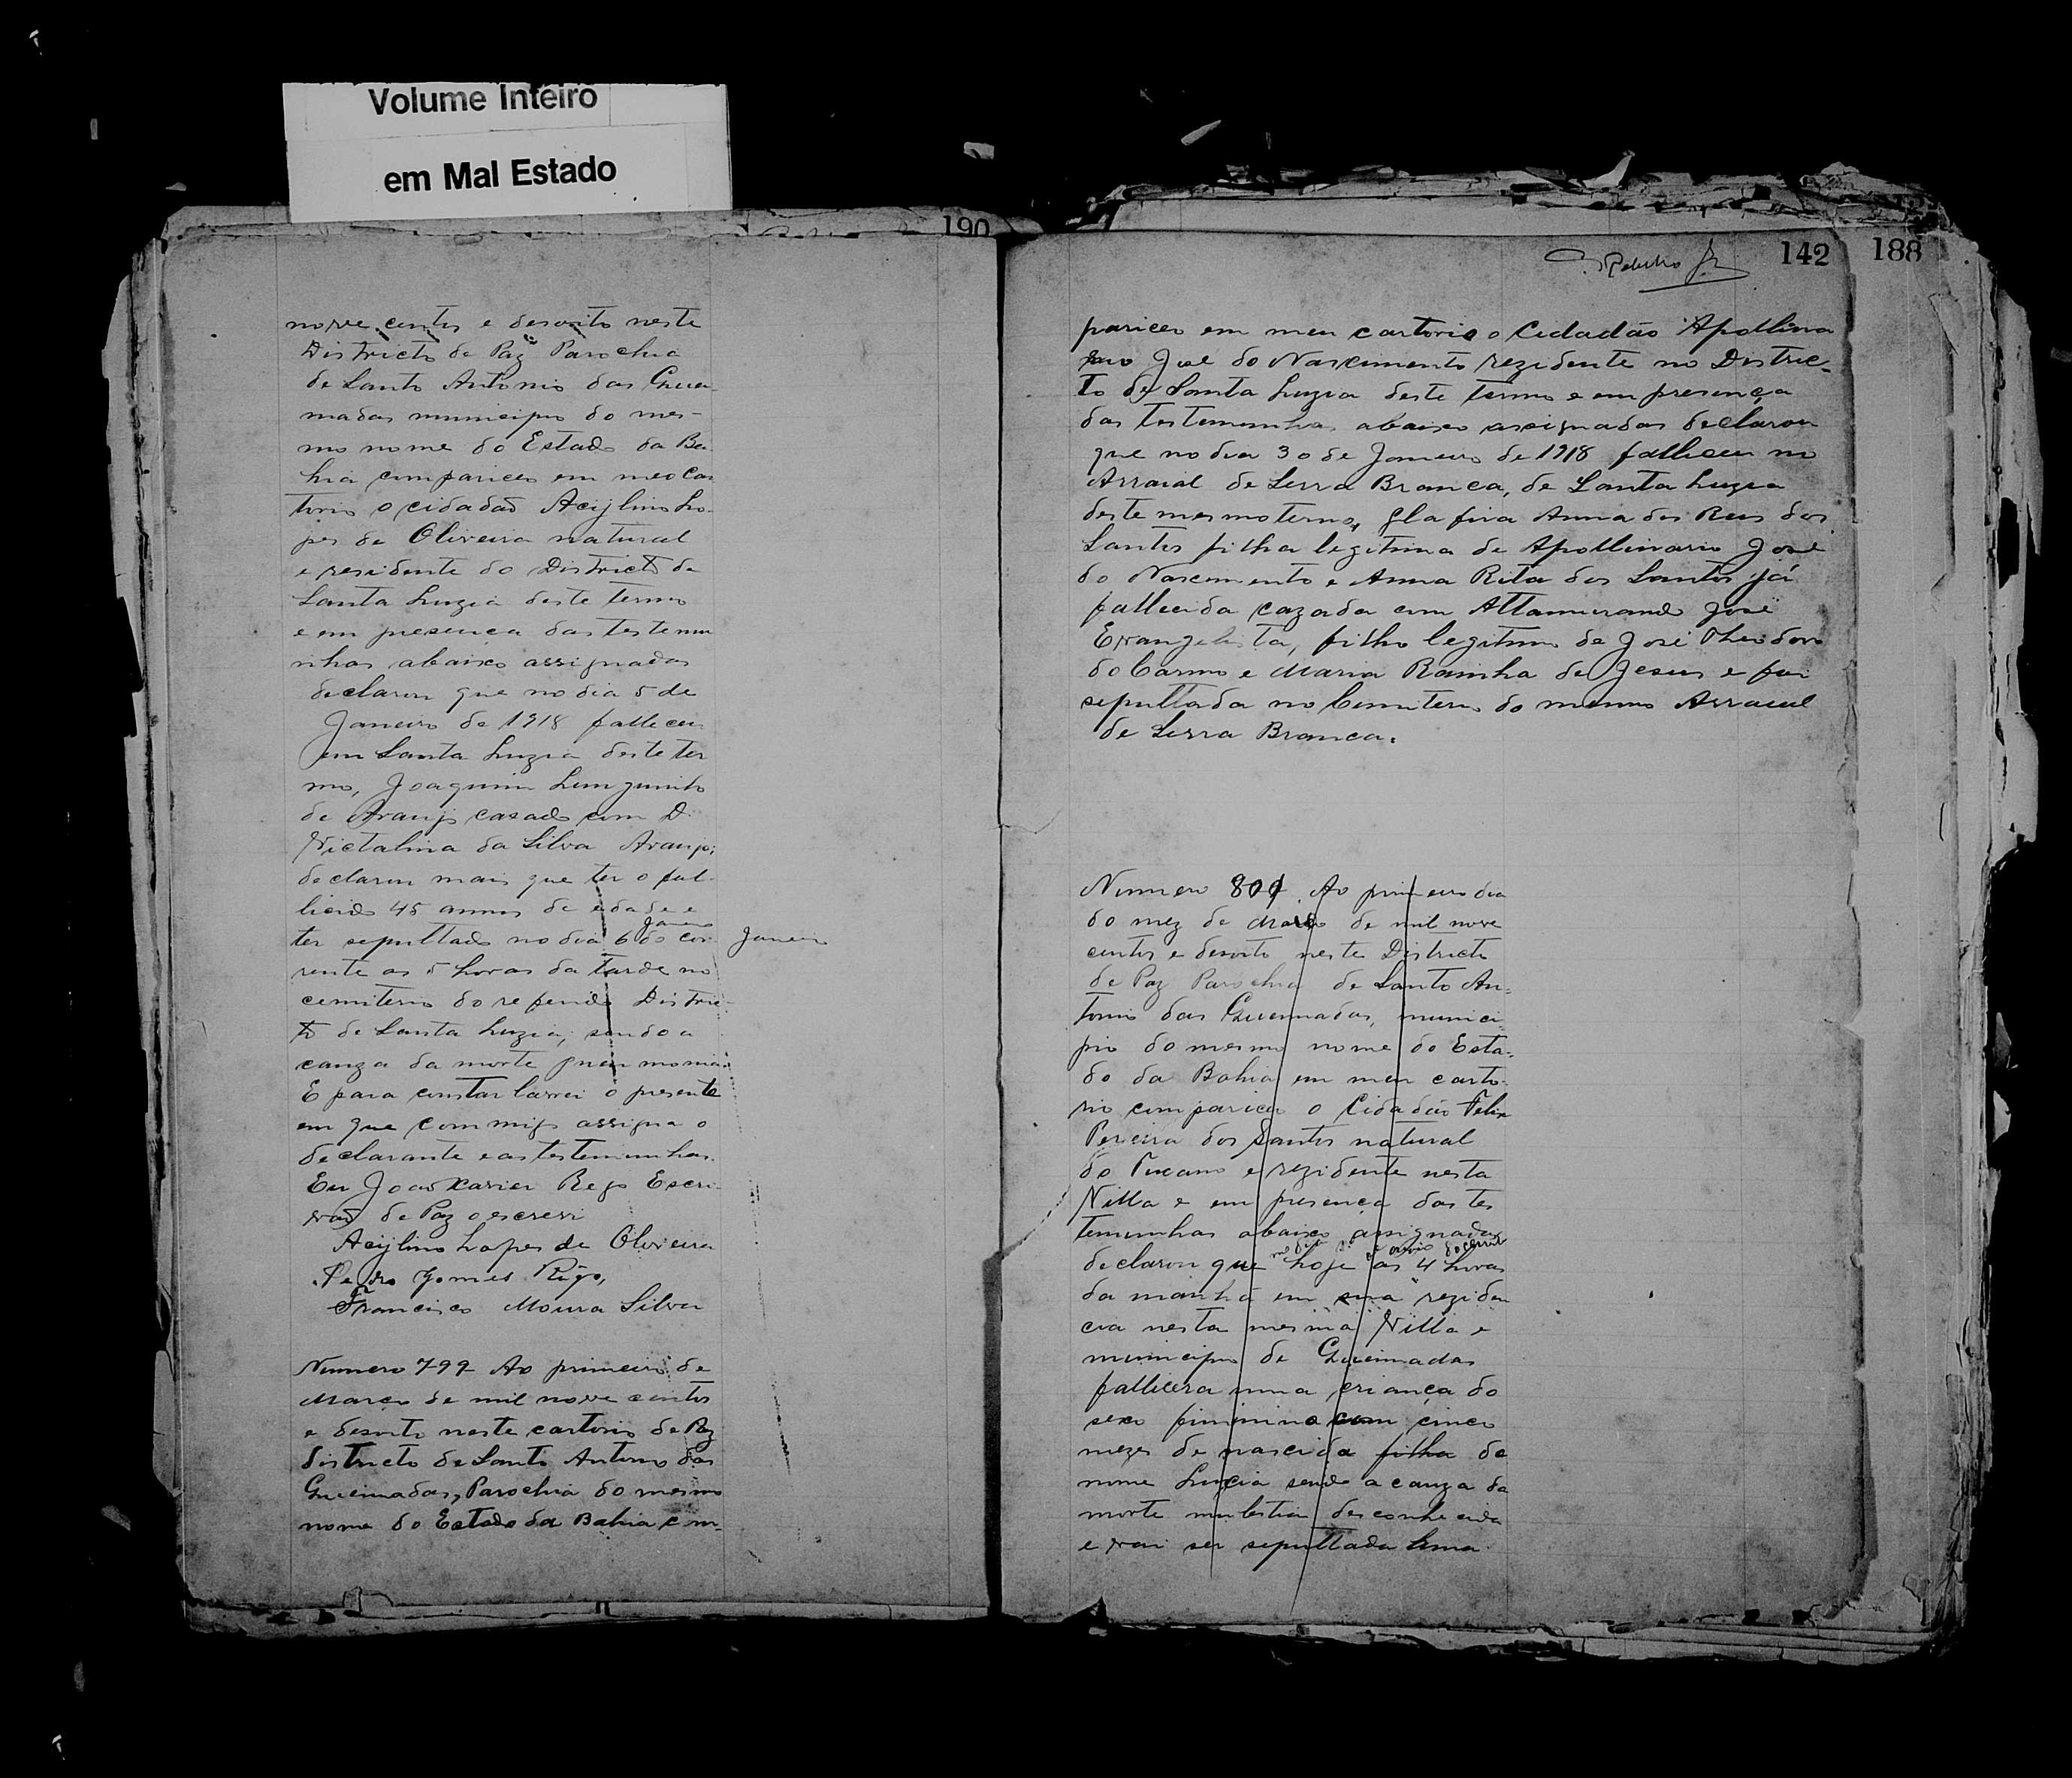 Volume Inteiro
em Mal Estado
190
nove centos e desoito neste
Districto de Paz Parochia
de Santo Antonio das Quei-
madas municipio do mes-
mo nome do Estado da Ba-
hia compareceo em meo Car
torio o cidadão Acijlino Lo-
pes de Oliveira natural
e residente do Districto de
Santa Luzia deste termo
e em presença das testemu
nhas abaixo assignadas
declarou que no dia 5 de
Janeiro de 1918 falleceu
em Santa Luzia deste ter
mo, Joaquim
de Araujo casado com D.
Victalina da Silva Araujo;
declarou mais que ter o fal-
licido 45 annos de edade e
Janeiro
ter sepultado no dia 6 do cor- Janeiro
rente as 5 horas da tarde no
cemiterio do referido Distric-
to de Santa Luzia; sendo a
cauza da morte pneumonia.
E para constar lavrei o presente
em que commigo assigna o
declarante e as testemunhas.
Eu João Xavier Rego Escri-
vão de Paz o escrevi
Acijlino Lopes de Oliveira
Pedro Gomes Rêgo,
Francisco Moura Silva
Numero 799 Ao primeiro de
Março de mil nove centos
e desoito neste cartorio de Paz
districto de Santo Antonio das
Queimadas, Parochia do mesmo
nome do Estado da Bahia com-
142
188
pariceo em meu cartorio o Cidadão Apollina
rio José do Nascimento rezidente no Distric-
to de Santa Luzia deste termo e em presença
das testemunhas abaixo assignadas declarou
que no dia 30 de Janeiro de 1918 falliceu no
Arraial de Serra Branca, de Santa Luzia
deste mesmo termo, Glafira Anna dos Reis dos
Santos filha legitima de Apollinario José
do Nascimento e Anna Rita dos Santos já
fallecida cazada com Altamirando José
Evangelista, filho legitimo de José Theodoro
do Carmo e Maria Rainha de Jesus e foi
sepultada no Cemiterio do mesmo Arraial
de Serra Branca.
Numero 801 Ao primeiro dia
do mez de Março de mil nove
centos e desoito neste Districto
de Paz Parochia de Santo An-
tonio das Queimadas, munici
pio do mesmo nome do Esta-
do da Bahia em meu carto-
rio compariceo o Cidadão Felix
Pereira dos Santos natural
do Tucano e rezidente nesta
Villa e em presença das tes
temunhas abaixo assignadas
declarou que hoje as 4 horas
da manhã em sua reziden
cia nesta mesma Villa e
municipio de Queimadas
fallicera uma criança do
sexo fiminino com cinco
mezes de nascida filha de
nome Lucia sendo a cauza da
morte mulestia desconhecida
e vai ser sepultada